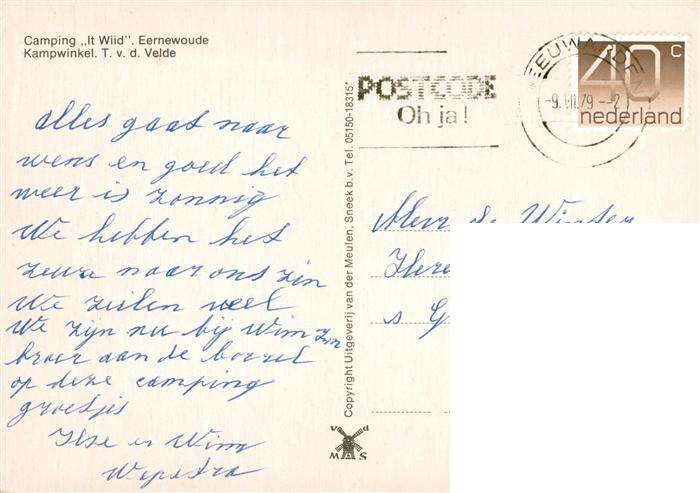 Camping „It Wiid”. Eernewoude
Kampwinkel. T. v. d. Velde
POSTCODE
Oh ja!
LEEUWARDEN
-9.VII.79 --2
40 C
nederland
alles gaat naar
wens en goed het
weer is zonnig
We hebben het
zeure naar ons zin
We zeilen veel
We zijn nu bij Wim zijn
broer aan de borrel
op deze camping
groetjes
Ilse en Wim
Copyright Uitgeverij van der Meulen, Sneek b.v. Tel. 05150-18315*
v d
M S W
Mevr de Winter
s G